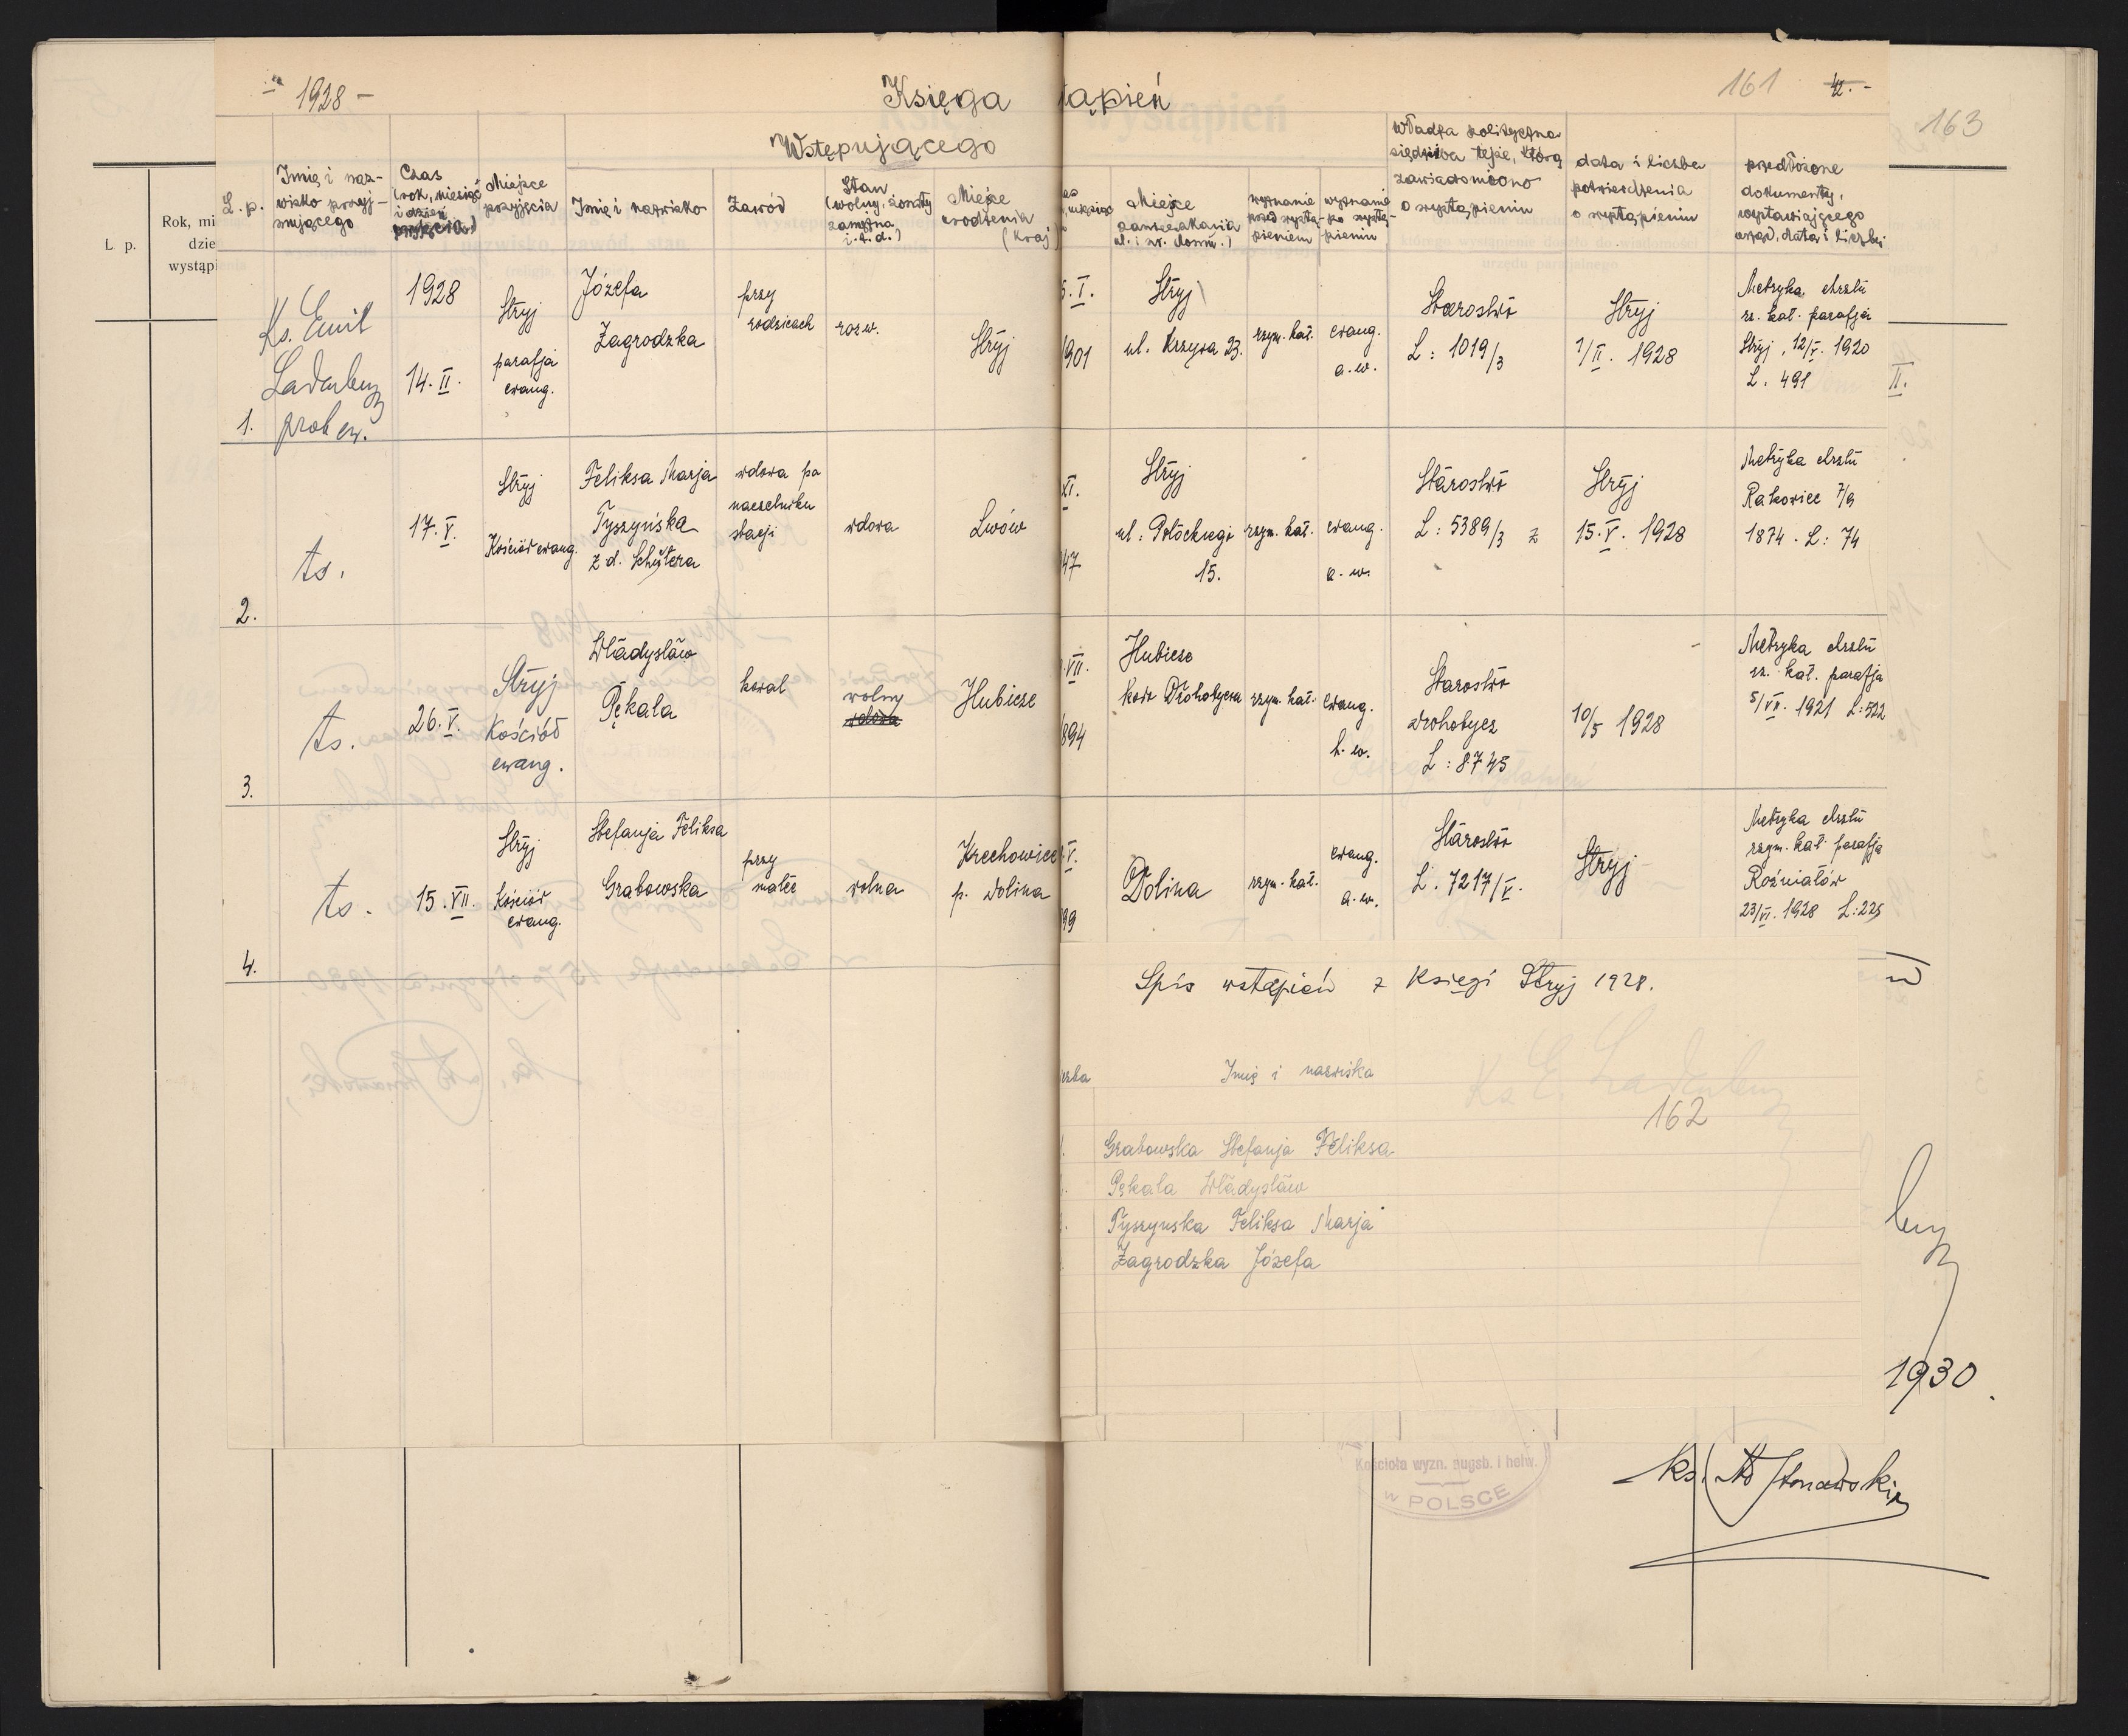 1928 –
Księga
tąpień
161
42. –
163
Wstępującego
L. p.
Rok, mi
dzie
wystąpi
L. p.
Imię i naz-
wisko przyj-
mującego
Czas
(rok, miesiąc
i dzień
przyjęcia)
Miejsce
przyjęcia
Imię i nazwisko
Zawód
Stan
(wolny, żonaty
zamężna
i. t. d.)
Miejsce
urodzenia
(kraj)
Miejsce
zamieszkania
ul. i nr. domu.)
wyznanie
przed wystą-
pieniem
wyznanie
po wystą-
pieniu
Władza polityczna
siedziba tejże, którą
zawiadomiono
o wystąpieniu
data i liczba
potwierdzenia
o wystąpieniu
przedłożone
dokumenty,
wystawiającego
urząd, data i liczba
1.
Ks. Emil
Ladenberger
prob ew.
1928
14. II.
Stryj
parafja
ewang.
Józefa
Zagrodzka
przy
rodzicach
rozw.
Stryj
5. I.
1901
Stryj
ul. Krzywa 23.
rzym. kat.
ewang.
a. w.
Starostwo
L: 1019/3
Stryj
1/II. 1928
Metryka chrztu
rz. kat. parafja
Stryj, 12/V. 1920
L. 491
II.
2.
ts.
17. V.
Stryj
Kościół ewang.
Feliksa Marja
Tyszyńska
z d. Schütera
wdowa po
naczelniku
stacji
wdowa
Lwów
XI.
47
Stryj
ul: Potockiego
15.
rzym. kat.
ewang.
a. w.
Starostwo
L: 5389/3 z
Stryj
15. V. 1928
Metryka chrztu
Rakowiec 7/9
1874. L: 74
3.
ts.
26. V.
Stryj
Kościół
ewang.
Władysław
Pękala
kowal
wolny
wdowa
Hubicze
VII.
894
Hubicze
koło Drohobycza
rzym. kat.
ewang.
h. w.
Starostwo
Drohobycz
L: 8745
10/5 1928
Metryka chrztu
rz. kat. parafja
5/VII. 1921 L: 522
4.
ts.
15. VII.
Stryj
Kościół
ewang.
Stefanja Feliksa
Grabowska
przy
matce
wolna
Krechowice
p. Dolina
V.
99
Dolina
rzym. kat.
ewang.
a. w.
Starostwo
L. 7217/V.
Stryj
Metryka chrztu
rzym. kat. parafja
Rożniatów
23/VI. 1928 L: 225
Spis wstąpień z Księgi Stryj 1928.
czba
Imię i nazwiska
162
Grabowska Stefanja Feliksa
Pękala Władysław
Tyszynska Feliksa Marja
Zagrodzka Józefa
1930.
Kościoła wyzn. augsb. i helw.
w POLSCE